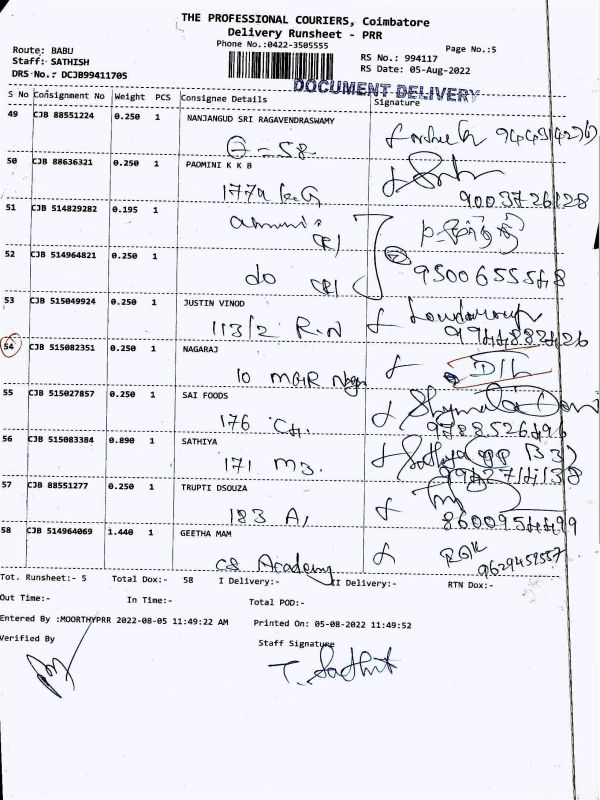 THE PROFESSIONAL COURIERS, Coimbatore
Delivery Runsheet - PRR
Phone No.:0422-3505555
Page No.:5
Route: BABU
Staff: SATHISH
DRS No.: DCJB99411705
RS No.: 994117
RS Date: 05-Aug-2022
DOCUMENT DELIVERY
S No Consignment No Weight PCS Consignee Details Signature
49 CJB 88551224 0.250 1 NANJANGUD SRI RAGAVENDRASWAMY
50 CJB 88636321 0.250 1 PADMINI K K B
177A K.G 9003726128
51 CJB 514829282 0.195 1
52 CJB 514964821 0.250 1
do 9500655548
53 CJB 515049924 0.250 1 JUSTIN VINOD
113/2 R.N 9944882426
54 CJB 515082351 0.250 1 NAGARAJ
10 MGR Nagar D/L
55 CJB 515027857 0.250 1 SAI FOODS
176 9788526496
56 CJB 515083384 0.890 1 SATHIYA Sathiya
171 M3. 9942714138
57 CJB 88551277 0.250 1 TRUPTI DSOUZA
183 A1 8600954499
58 CJB 514964069 1.440 1 GEETHA MAM
CS Academy RGK 9629459557
Tot. Runsheet:- 5 Total Dox:- 58 I Delivery:- II Delivery:- RTN Dox:-
Out Time:- In Time:- Total POD:-
Entered By :MOORTHYPRR 2022-08-05 11:49:22 AM Printed On: 05-08-2022 11:49:52
Verified By Staff Signature
T. Sathish